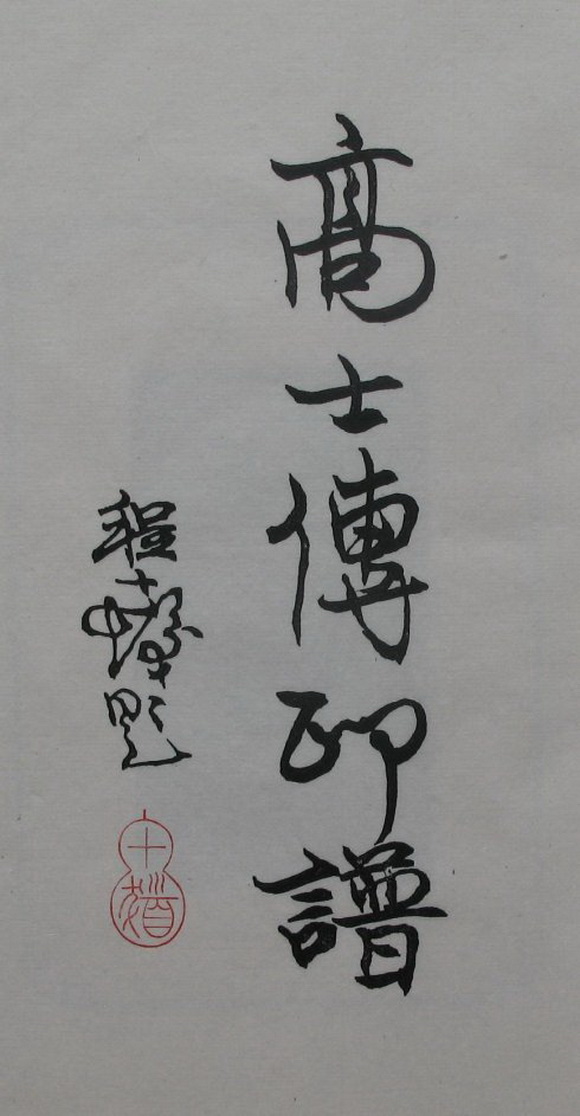 高士傳印譜
程十髮題